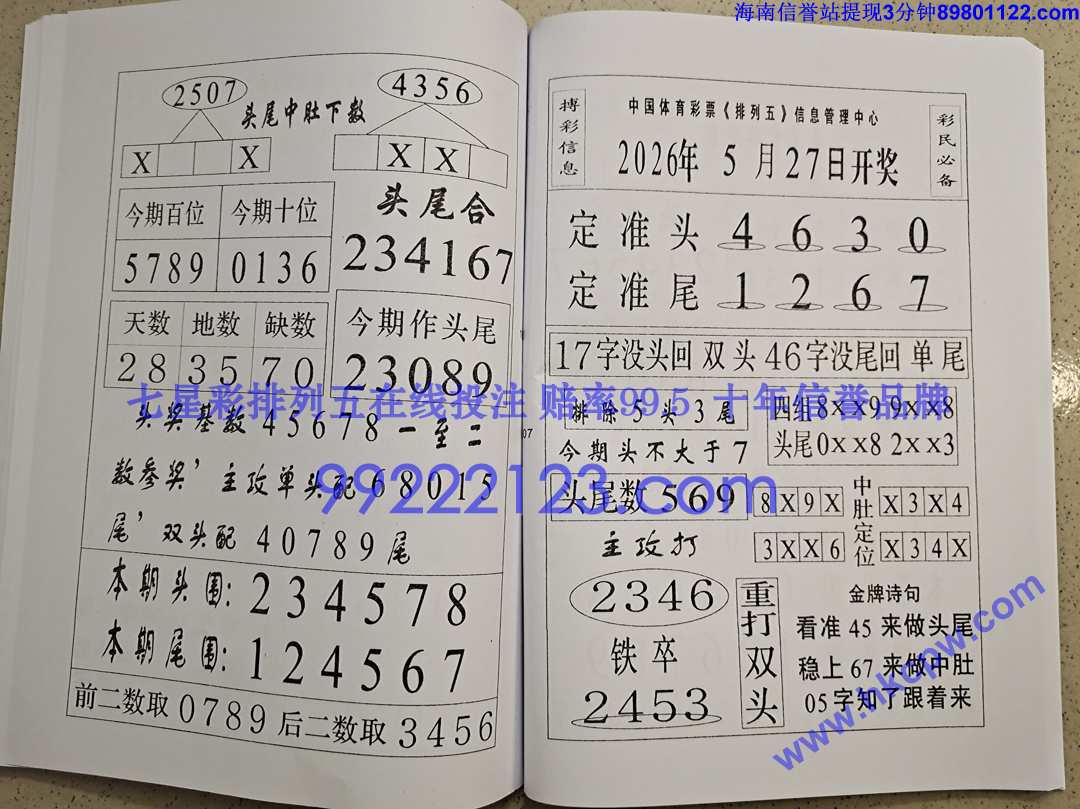 海南信誉站提现3分钟89801122.com
2507
头尾中肚下数
4356
X X
X X
今期百位 今期十位
5789 0136
头尾合
234167
天数 地数 缺数
28 35 70
今期作头尾
23089
七星彩排列五在线投注 赔率99.5 十年信誉品牌
头奖基数45678一至二
数参奖’主攻单头配68015
尾’双头配40789尾
99222123.com
本期头围:234578
本期尾围:124567
前二数取0789后二数取3456
07
搏彩信息
中国体育彩票《排列五》信息管理中心
2026年5月27日开奖
彩民必备
定准头 4 6 3 0
定准尾 1 2 6 7
17字没头回双头46字没尾回单尾
排除5头3尾
今期头不大于7
四组8XX9 9XX8
头尾0XX8 2XX3
头尾数569
8X9X
中肚定位
X3X4
主攻打
3XX6
X34X
2346
铁卒
2453
重打双头
金牌诗句
看准45来做头尾
稳上67来做中肚
05字知了跟着来
www.hkcpw.com